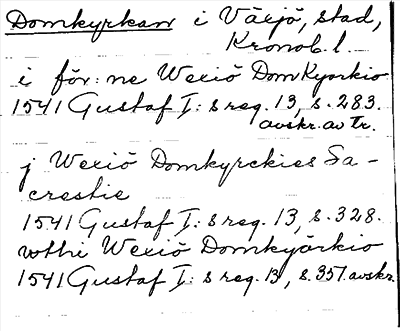 Domkyrkan i Växjö, stad,
Kronob. l.
i för: ne Wexiö DomKyrkio
1541 Gustaf I: s reg. 13, s. 283.
avskr. av tr.
j Wexiö Domkyrckies Sa-
crestie
1541 Gustaf I: s reg. 13, s. 328.
wthi Wexiö Domkyärkio
1541 Gustaf I: s reg. 13, s. 357. avskr.